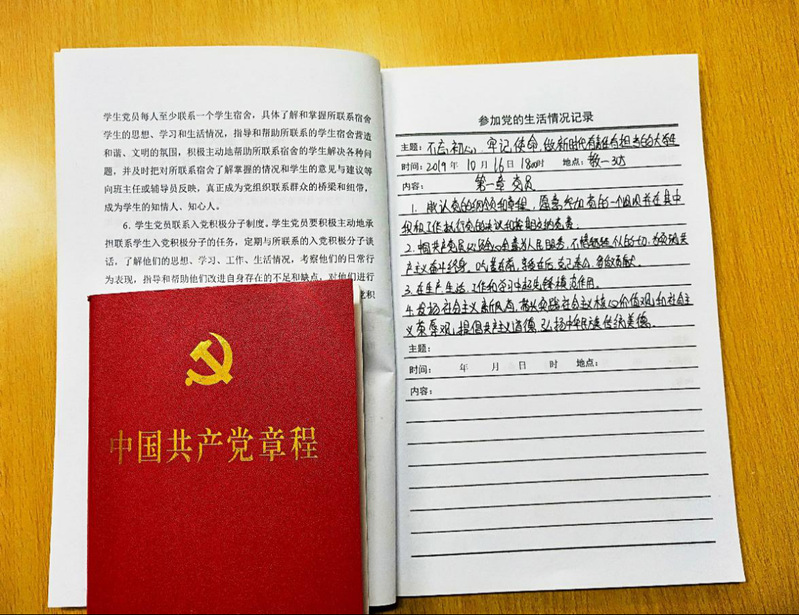 学生党员每人至少联系一个学生宿舍，具体了解和掌握所联系宿舍
学生的思想、学习和生活情况，指导和帮助所联系的学生宿舍营造
和谐、文明的氛围，积极主动地帮助所联系宿舍的学生解决各种问
题，并及时把对所联系宿舍了解掌握的情况和学生的意见与建议等
向班主任或辅导员反映，真正成为党组织联系群众的桥梁和纽带，
成为学生的知情人、知心人。
6. 学生党员联系入党积极分子制度。学生党员要积极主动地承
担联系学生入党积极分子的任务，定期与所联系的入党积极分子谈
话，了解他们的思想、学习、工作、生活情况，考察他们的日常行
为表现，指导和帮助他们改进自身存在的不足和缺点，对他们进行
党积
中国共产党章程
参加党的生活情况记录
主题：不忘初心，牢记使命，做新时代有责任有担当的大学生
时间：2019年 10月 16日 18:00时 地点：教一-305
内容： 第一章 党员
1. 承认党的纲领和章程，愿意参加党的一个组织并在其中
积极工作，执行党的决议和按期交纳党费。
2. 中国共产党党员必须全心全意为人民服务，不惜牺牲个人的一切，为实现共
产主义奋斗终身。吃苦在前，享受在后，克己奉公，多做贡献。
3. 在生产生活、工作和学习中起先锋模范作用。
4. 发扬社会主义新风尚，带头实践社会主义核心价值观和社会主
义荣辱观，提倡共产主义道德，弘扬中华民族传统美德。
主题：
时间： 年 月 日 时 地点：
内容：